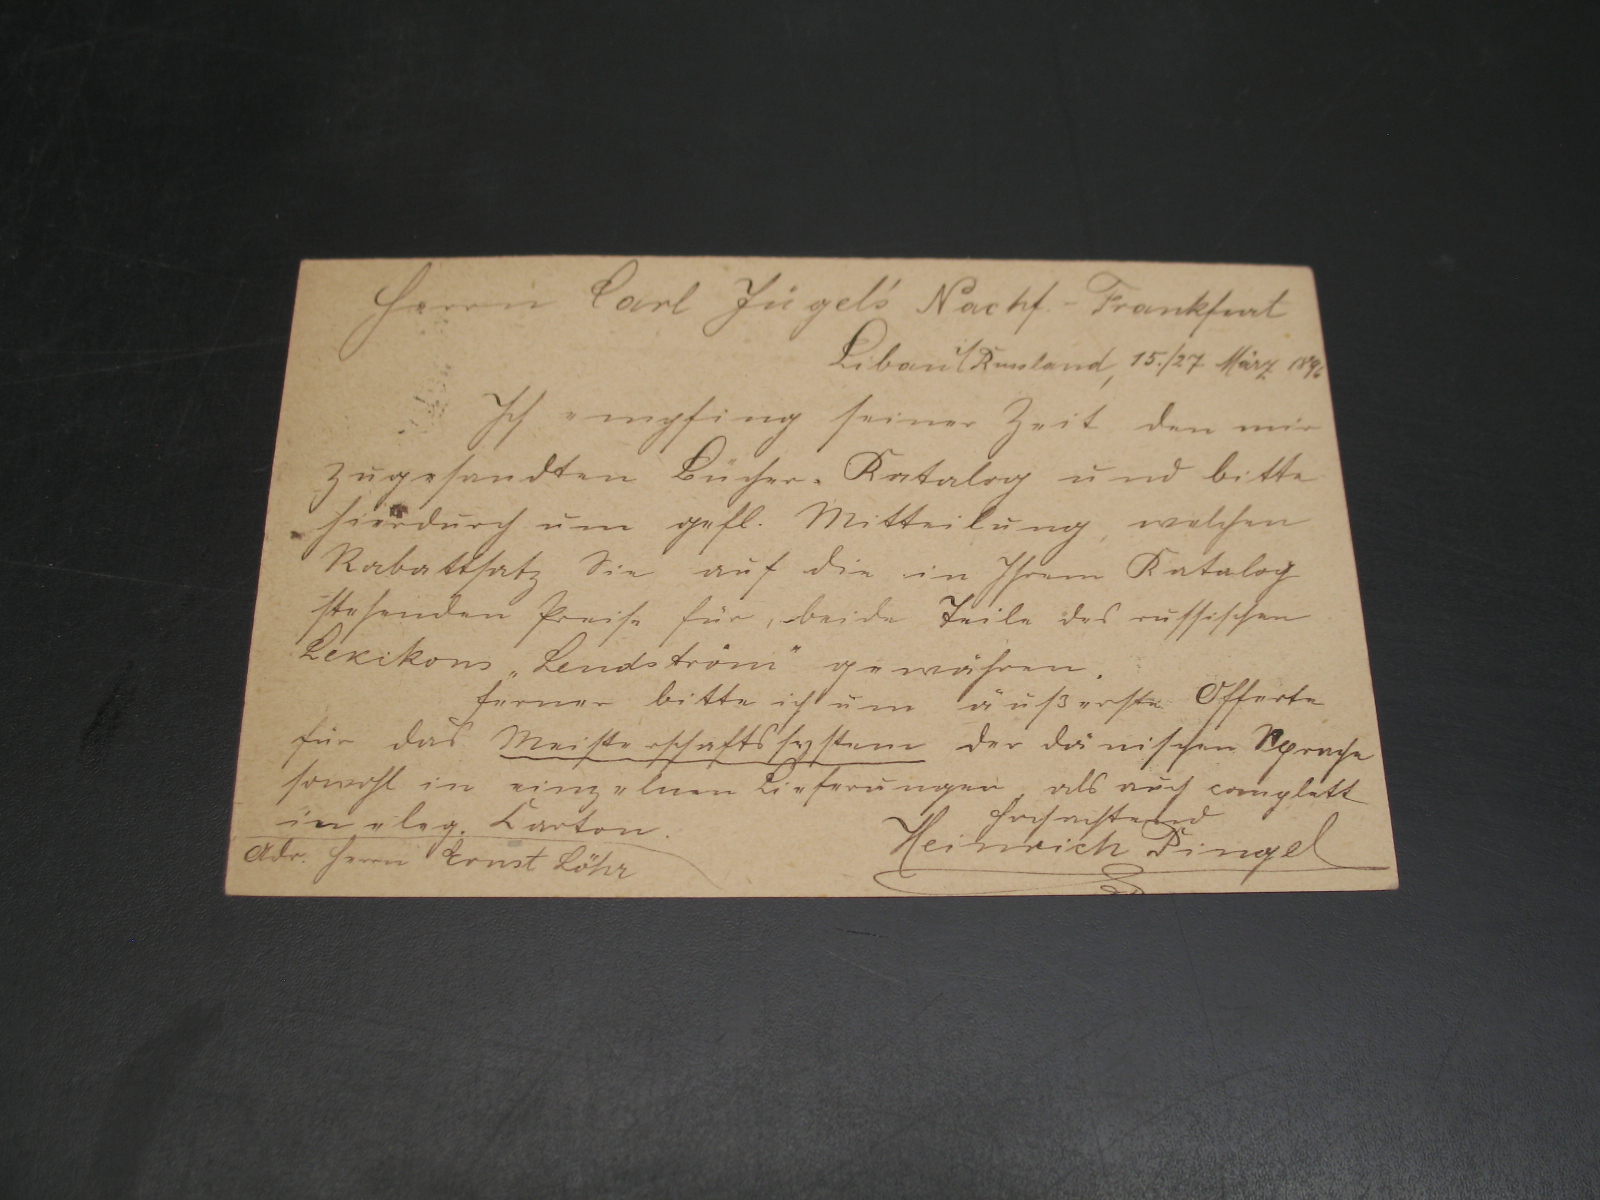 Herrn Carl Jügel's Nachf. - Frankfurt
Libau i/Russland, 15./27 März 1896
Ich empfing seiner Zeit den mir
zugesandten Bücher-Katalog und bitte
hierdurch um gefl. Mitteilung, welchen
Rabattsatz Sie auf die in Ihrem Katalog
stehenden Preise für beide Teile des russischen
Lexikons „Lendström" gewähren.
Ferner bitte ich um äußerste Offerte
für das Meisterschaftssystem der dänischen Sprache
sowohl in einzelnen Lieferungen, als auch complett
in eleg. Karton.
Hochachtend
Heinrich Pingel
Adr. Herrn Ernst Löhr